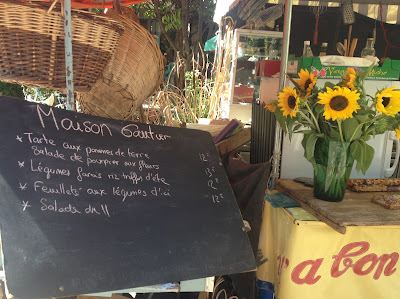 Maison Gautier
* Tarte aux pommes de terre 12€
Salade de pourpier aux fleurs 13€
* Légumes farcis riz truffes d'été 12€
* Feuilleté aux légumes d'ici 12€
* Salade
r'a bon